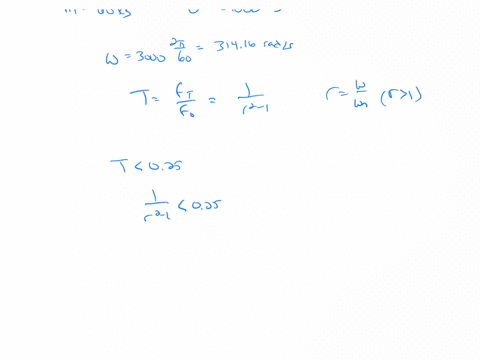 ω = 3000 2π/60 = 314.16 rad/s
T = F_T/F_0 = 1/(r²-1) r = ω/ω_n (r>1)
T < 0.25
1/(r²-1) < 0.25